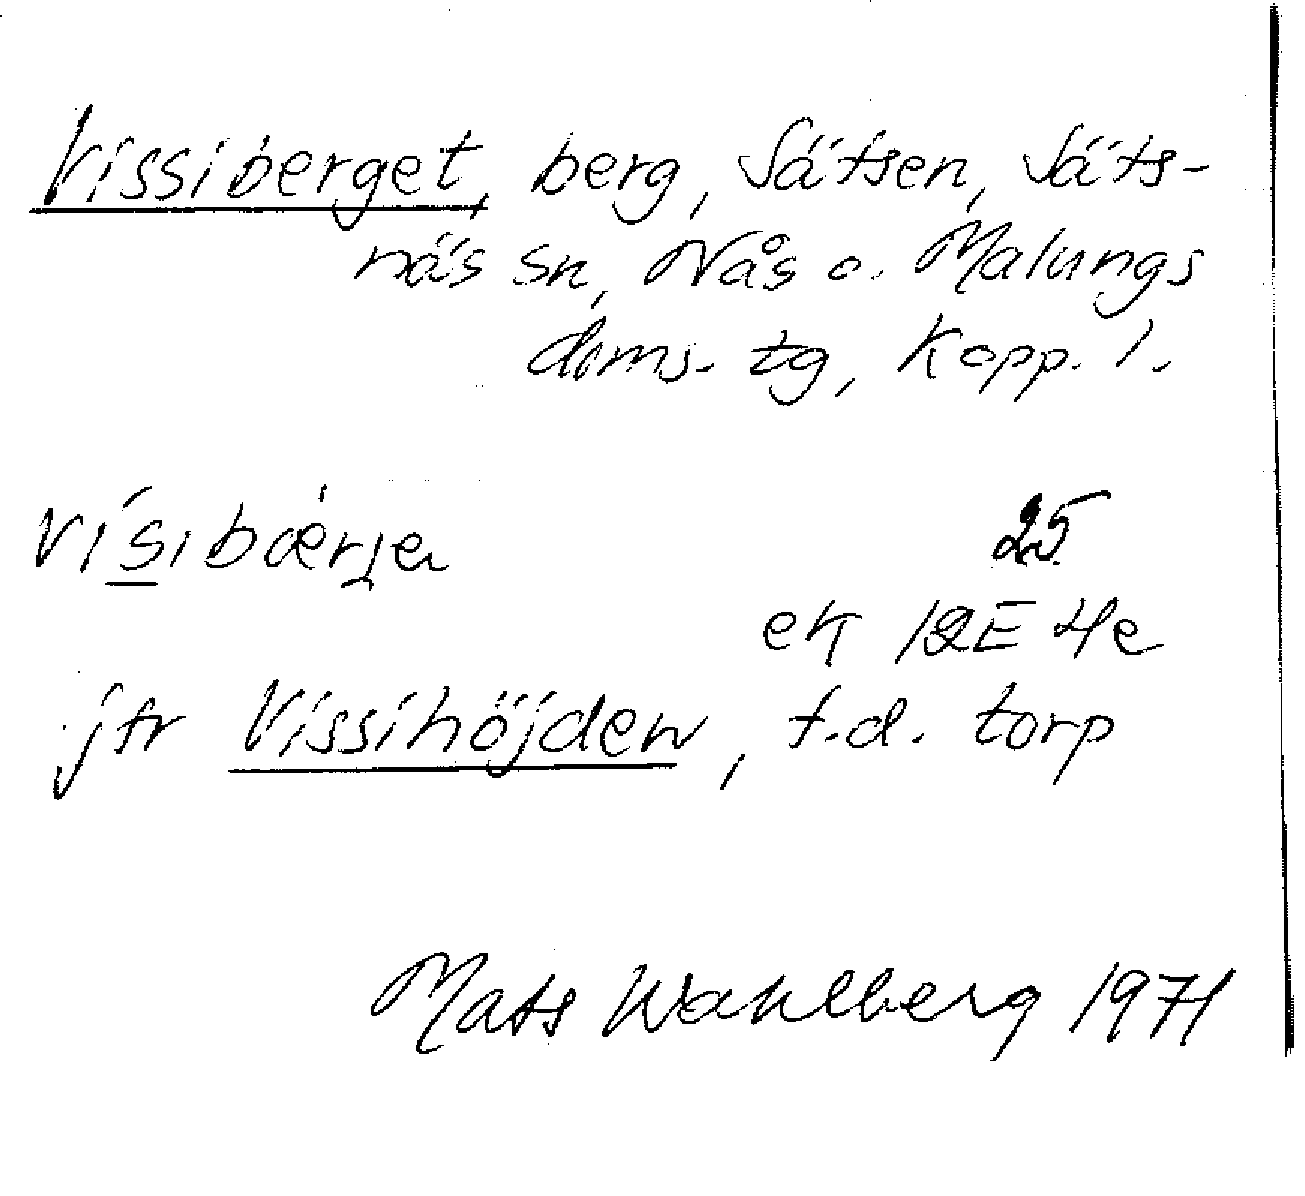 Vissiberget, berg, Sätsen, Säts-
näs sn, Nås o. Malungs
doms. tg, Kopp. l.
vísibærje 25
ek 12E 4e
jfr Vissihöjden, f.d. torp
Mats Wahlberg 1971